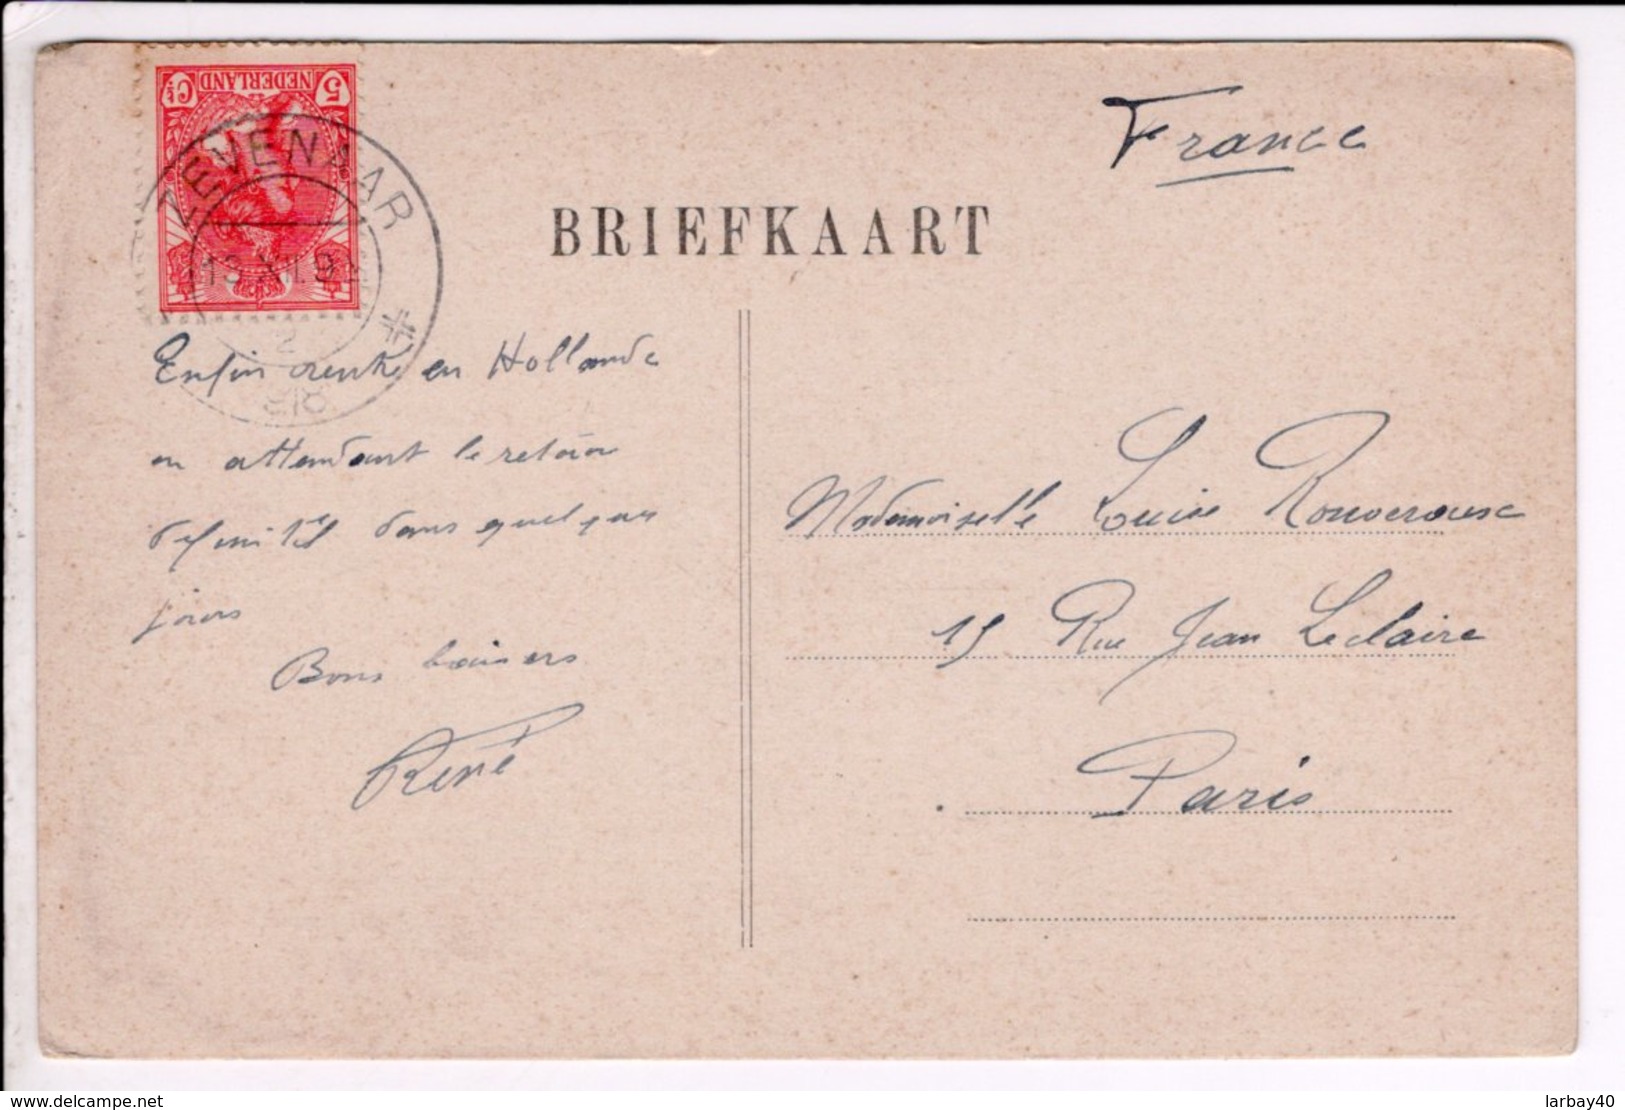 5 NEDERLAND Ct
ZEVENAAR
13 XI 9
2
918
France
BRIEFKAART
Enfin rentré en Hollande
en attendant le retour
définitif dans quelques
jours
Bons baisers
René
Mademoiselle Louise
15 Rue Jean Leclaire
Paris
www.delcampe.net
larbay40